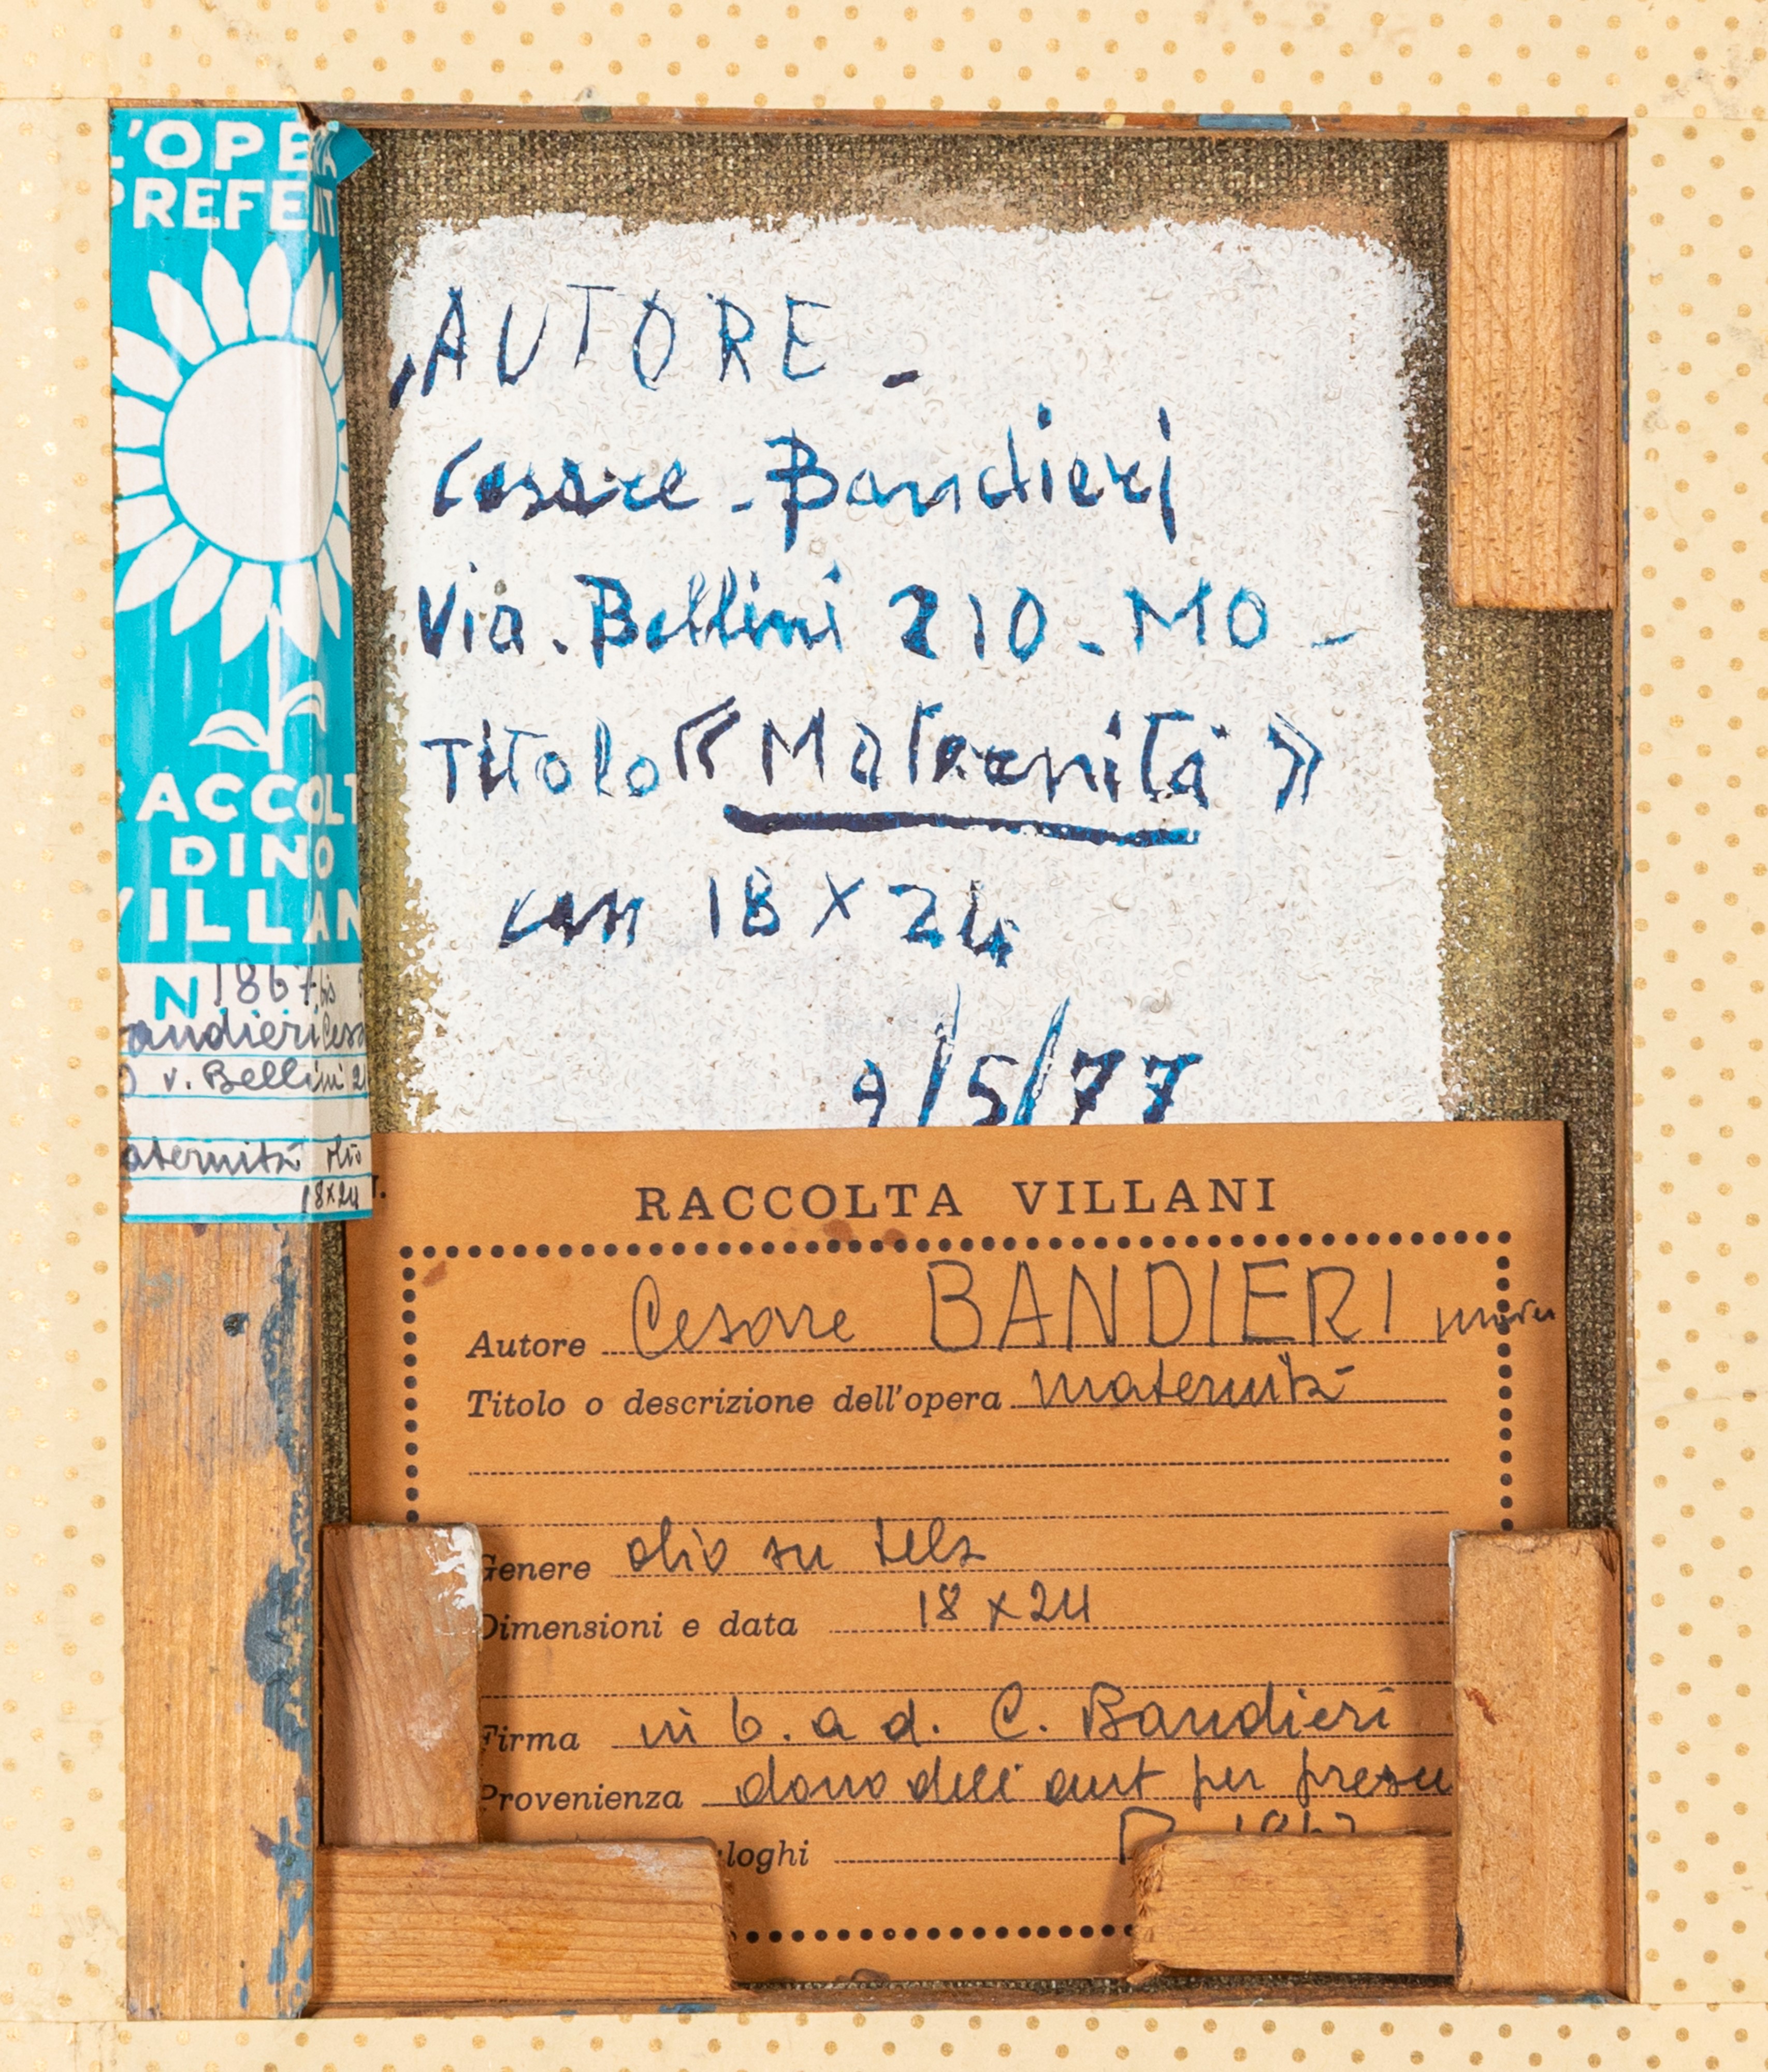 L'OPERA
PREFERIT
RACCOLT
DINO
VILLAN
N 1867 bis
andieri Cesa
v. Bellini 2
aternità olio
18x24
AUTORE -
Cesare - Bandieri
Via. Bellini 210 - MO -
TiTolo « MaTerniTà »
cm 18 x 24
9/5/77
RACCOLTA VILLANI
Autore Cesare BANDIERI
Titolo o descrizione dell'opera maternità
Genere olio su tela
Dimensioni e data 18 x 24
Firma in b. a d. C. Bandieri
Provenienza dono dell'aut per
loghi